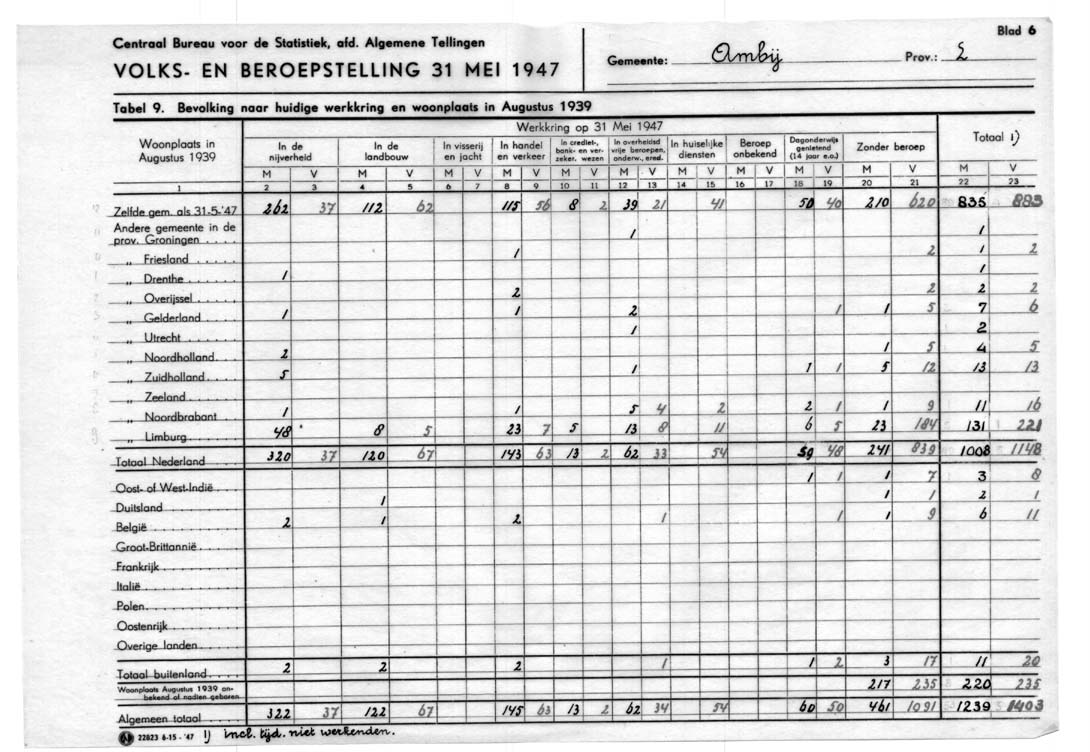 Blad 6
Centraal Bureau voor de Statistiek, afd. Algemene Tellingen
VOLKS- EN BEROEPSTELLING 31 MEI 1947
Gemeente: Ambij Prov.: L
Tabel 9. Bevolking naar huidige werkkring en woonplaats in Augustus 1939
Woonplaats in Augustus 1939
Werkkring op 31 Mei 1947
Totaal 1)
In de nijverheid
In de landbouw
In visserij en jacht
In handel en verkeer
In crediet-, bank- en ver-zeker. wezen
In overheidsd vrije beroepen, onderw., ered.
In huiselijke diensten
Beroep onbekend
Dagonderwijs genietend (14 jaar e.o.)
Zonder beroep
M V M V M V M V M V M V M V M V M V M V M V
1 2 3 4 5 6 7 8 9 10 11 12 13 14 15 16 17 18 19 20 21 22 23
Zelfde gem. als 31-5-'47 262 37 112 62 115 56 8 2 39 21 41 50 40 210 620 835 883
Andere gemeente in de
prov. Groningen 1 1
„ Friesland 1 2 1 2
„ Drenthe 1 1
„ Overijssel 2 2 2 2
„ Gelderland 1 1 2 1 1 5 7 6
„ Utrecht 1 2
„ Noordholland 2 1 5 4 5
„ Zuidholland 5 1 1 1 5 12 13 13
„ Zeeland
„ Noordbrabant 1 1 5 4 2 2 1 1 9 11 16
„ Limburg 48 8 5 23 7 5 13 8 11 6 5 23 184 131 221
Totaal Nederland 320 37 120 67 143 63 13 2 62 33 54 59 48 241 839 1008 1148
Oost- of West-Indië 1 1 1 7 3 8
Duitsland 1 1 1 2 1
België 2 1 2 1 1 1 9 6 11
Groot-Brittannië
Frankrijk
Italië
Polen
Oostenrijk
Overige landen
Totaal buitenland 2 2 2 1 1 2 3 17 11 20
Woonplaats Augustus 1939 on-
bekend of nadien geboren 217 235 220 235
Algemeen totaal 322 37 122 67 145 63 13 2 62 34 54 60 50 461 1091 1239 1403
22823 6-15 - '47 1) incl. tijd. niet werkenden.